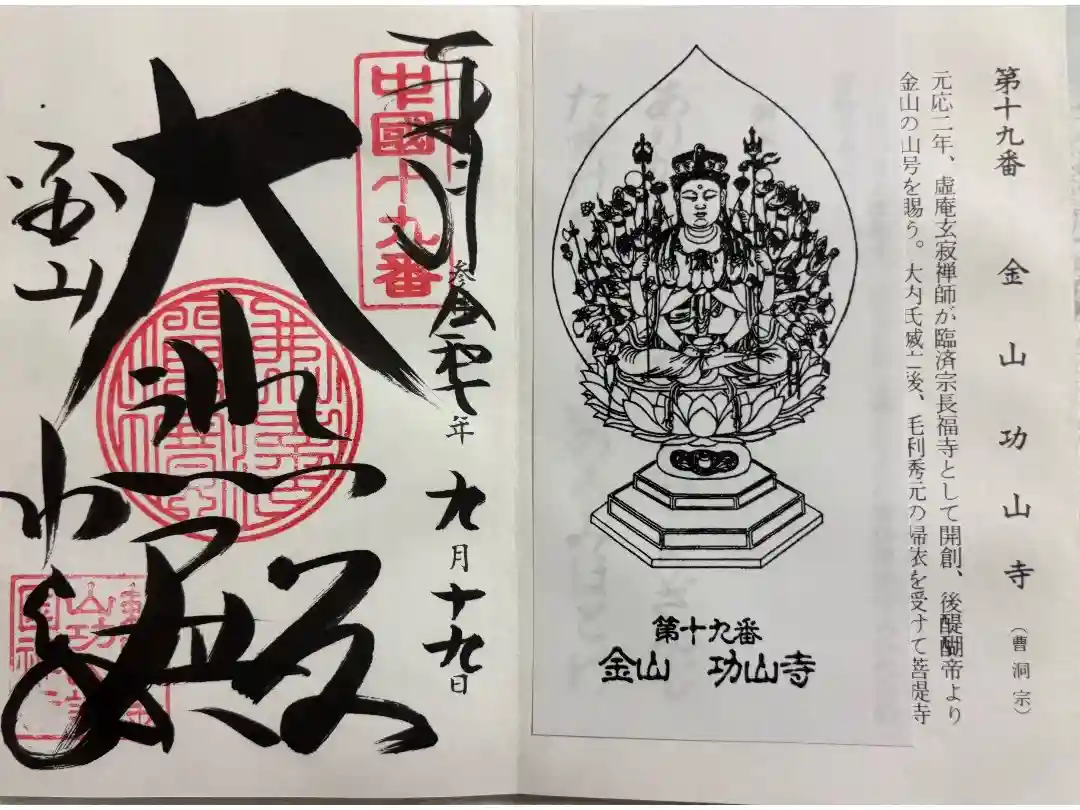 第十九番 金山功山寺 (曹洞宗)
元応二年、虚庵玄寂禅師が臨済宗長福寺として開創、後醍醐帝より
金山の山号を賜う。大内氏滅亡後、毛利秀元の帰依を受けて菩提寺
第十九番
金山 功山寺
奉拝
中國十九番
参
令和 年
九月十九日
大悲殿
金山
功山寺